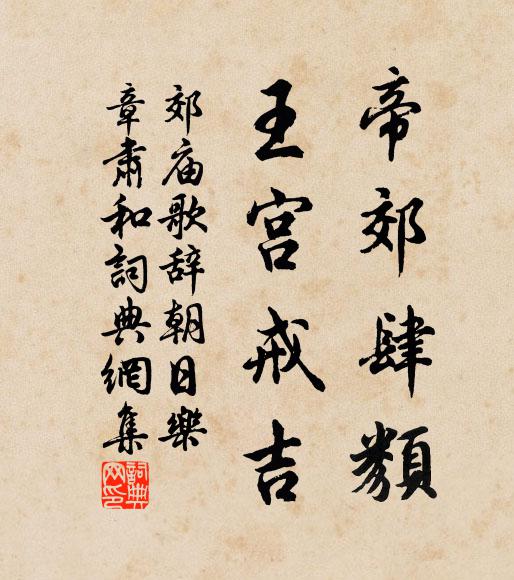 帝郊肆類
王宮戒吉
郊庙歌辞朝日樂
章肅和詞典網集
詞典网印